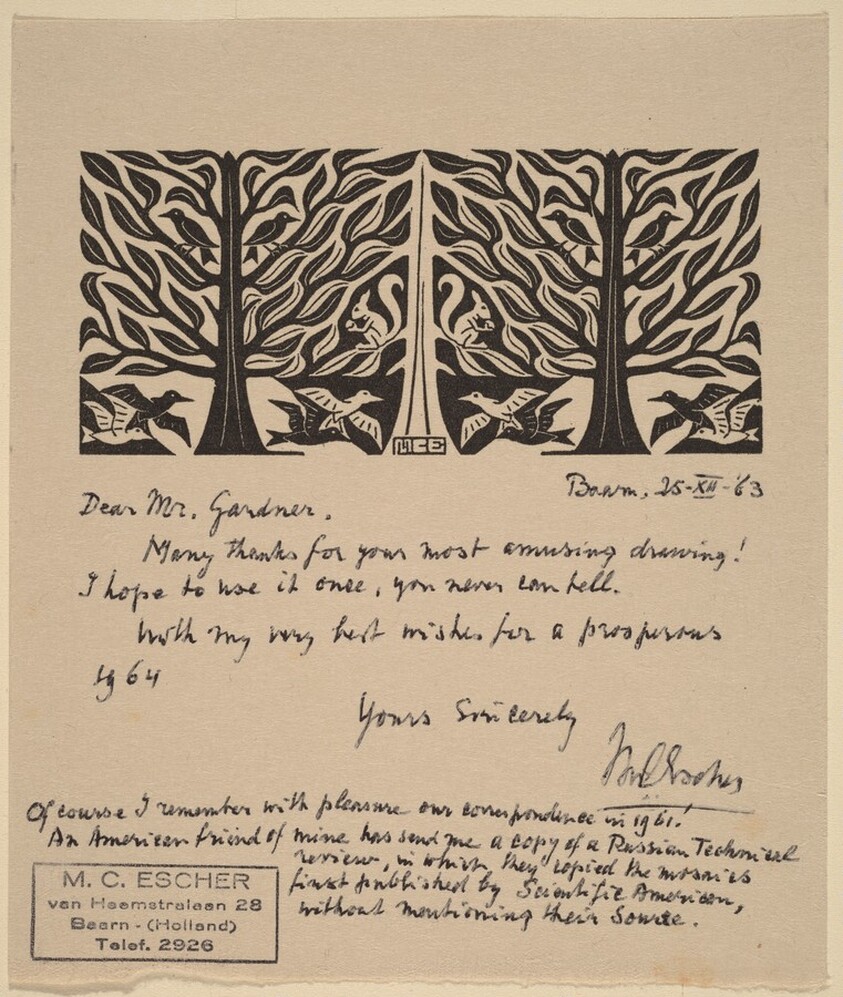 MCE
Baarn, 25-XII-'63
Dear Mr. Gardner.
Many thanks for your most amusing drawing!
I hope to use it once, you never can tell.
With my very best wishes for a prosperous
1964
Yours Sincerely
MC Escher
Of course I remember with pleasure our correspondence in 1961!
An American friend of mine has send me a copy of a Russian Technical
review, in which they copied the mosaics
first published by Scientific American,
without mentioning their Source.
M. C. ESCHER
van Heemstralaan 28
Baarn - (Holland)
Telef. 2926